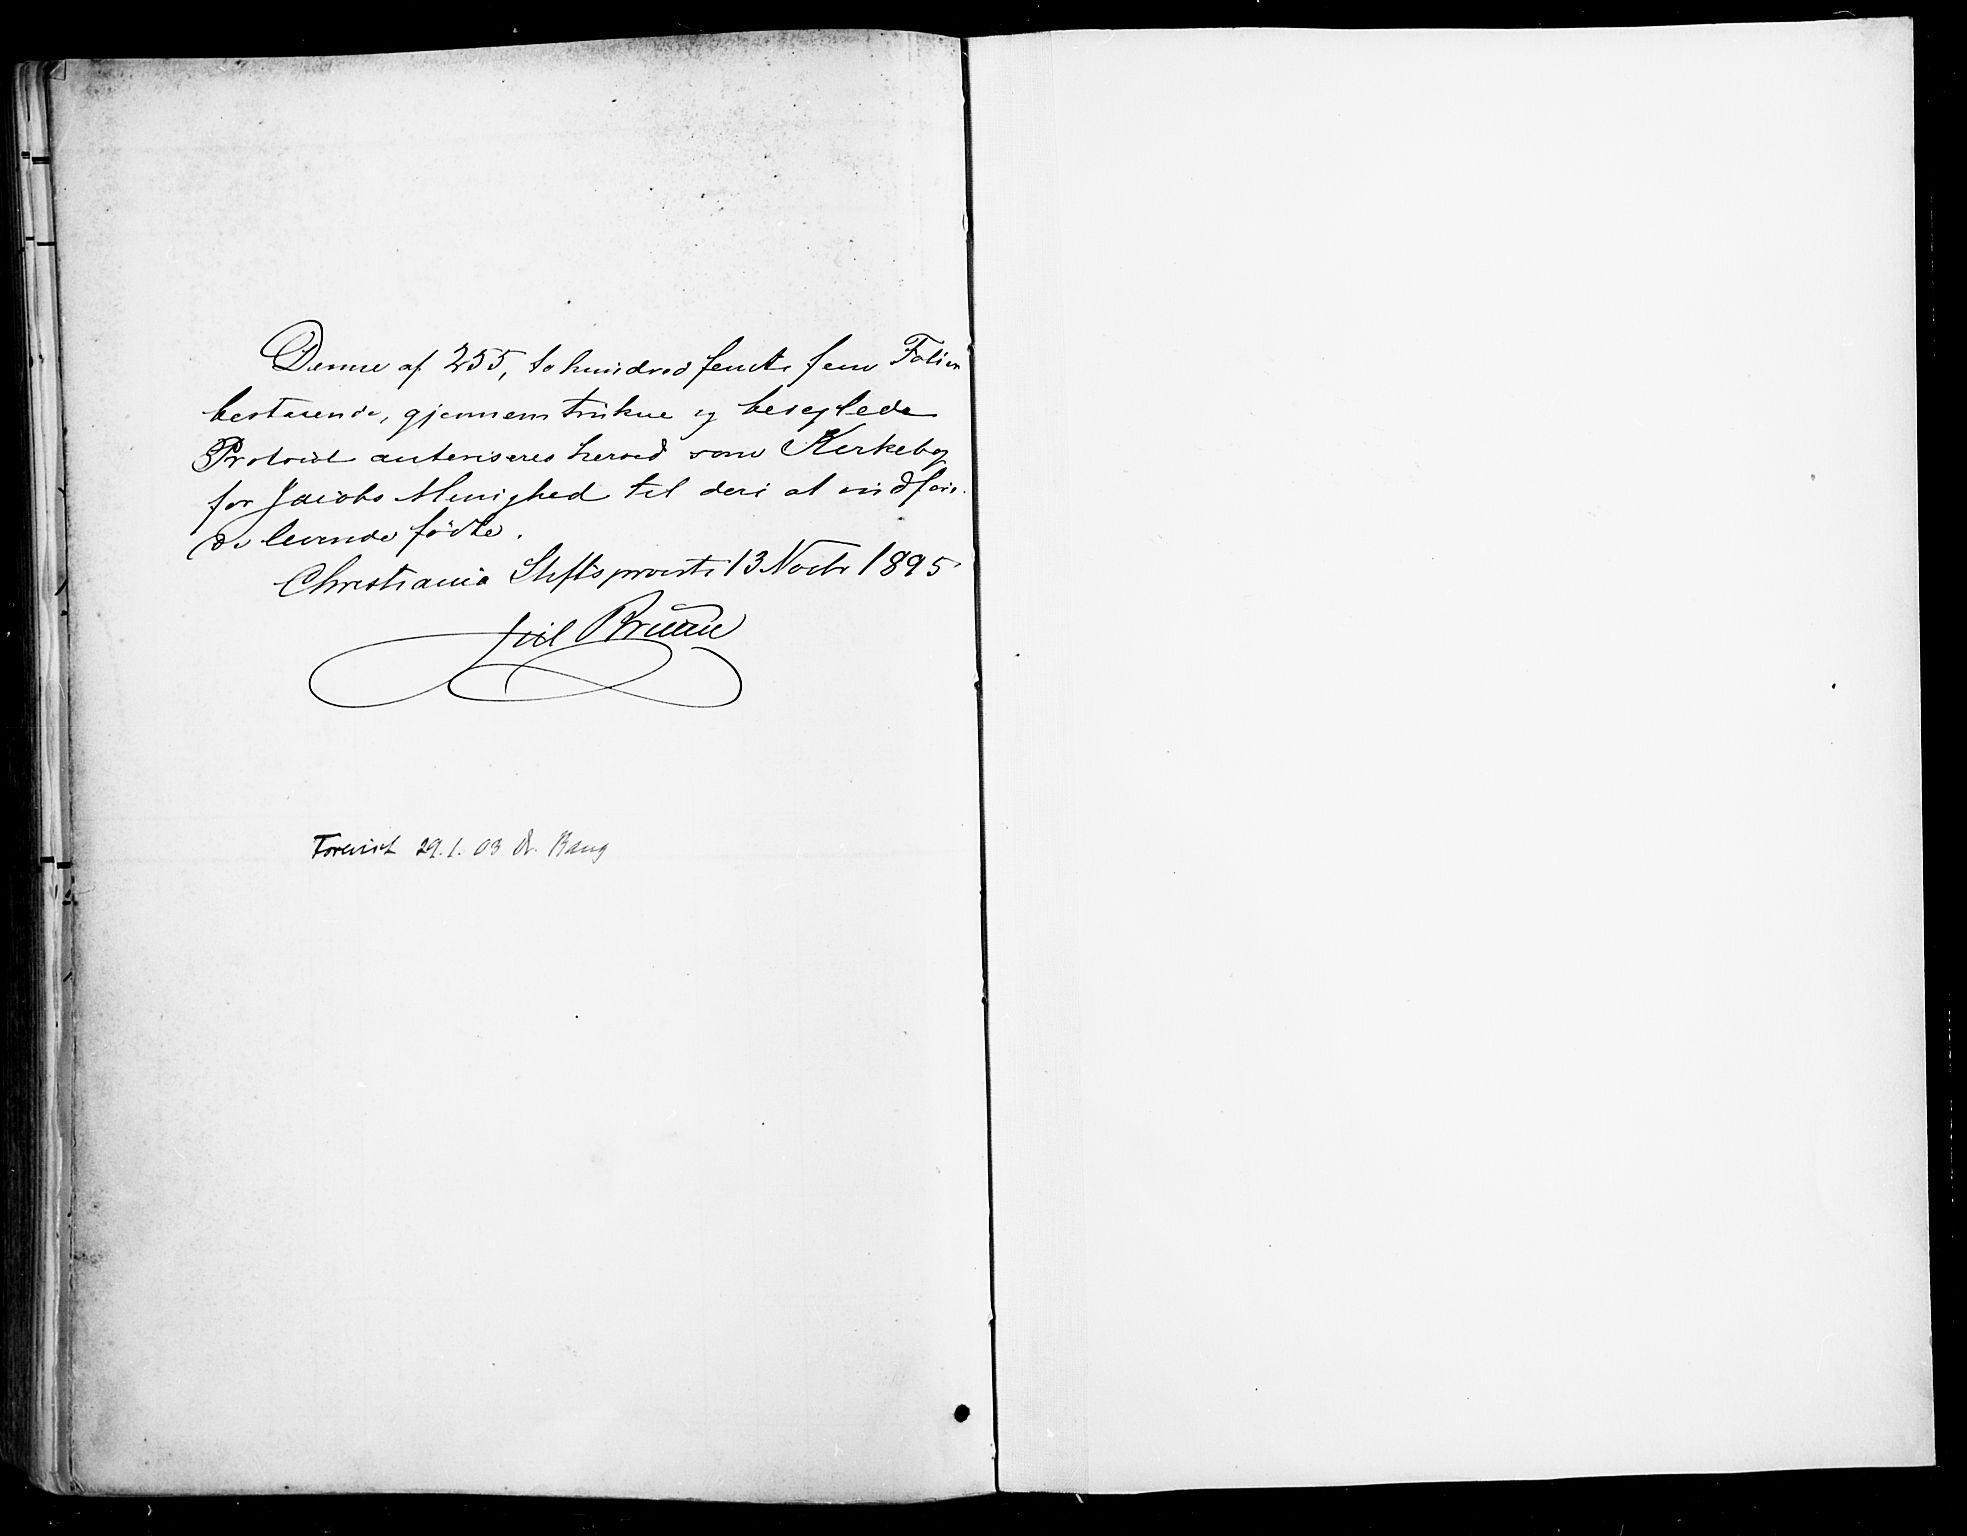 Denne af 255, to hundred femti fem Folier
bestaaende, gjennemtrukne og beseglede
Protocol autoriseres herved som Kirkebog
for Jacobs Menighed til deri at indføre
de levende fødte.
Christiania Stiftsprovsti 13 Novbr 1895
Bruun
Forevist 29.1.03 Dr. Bang